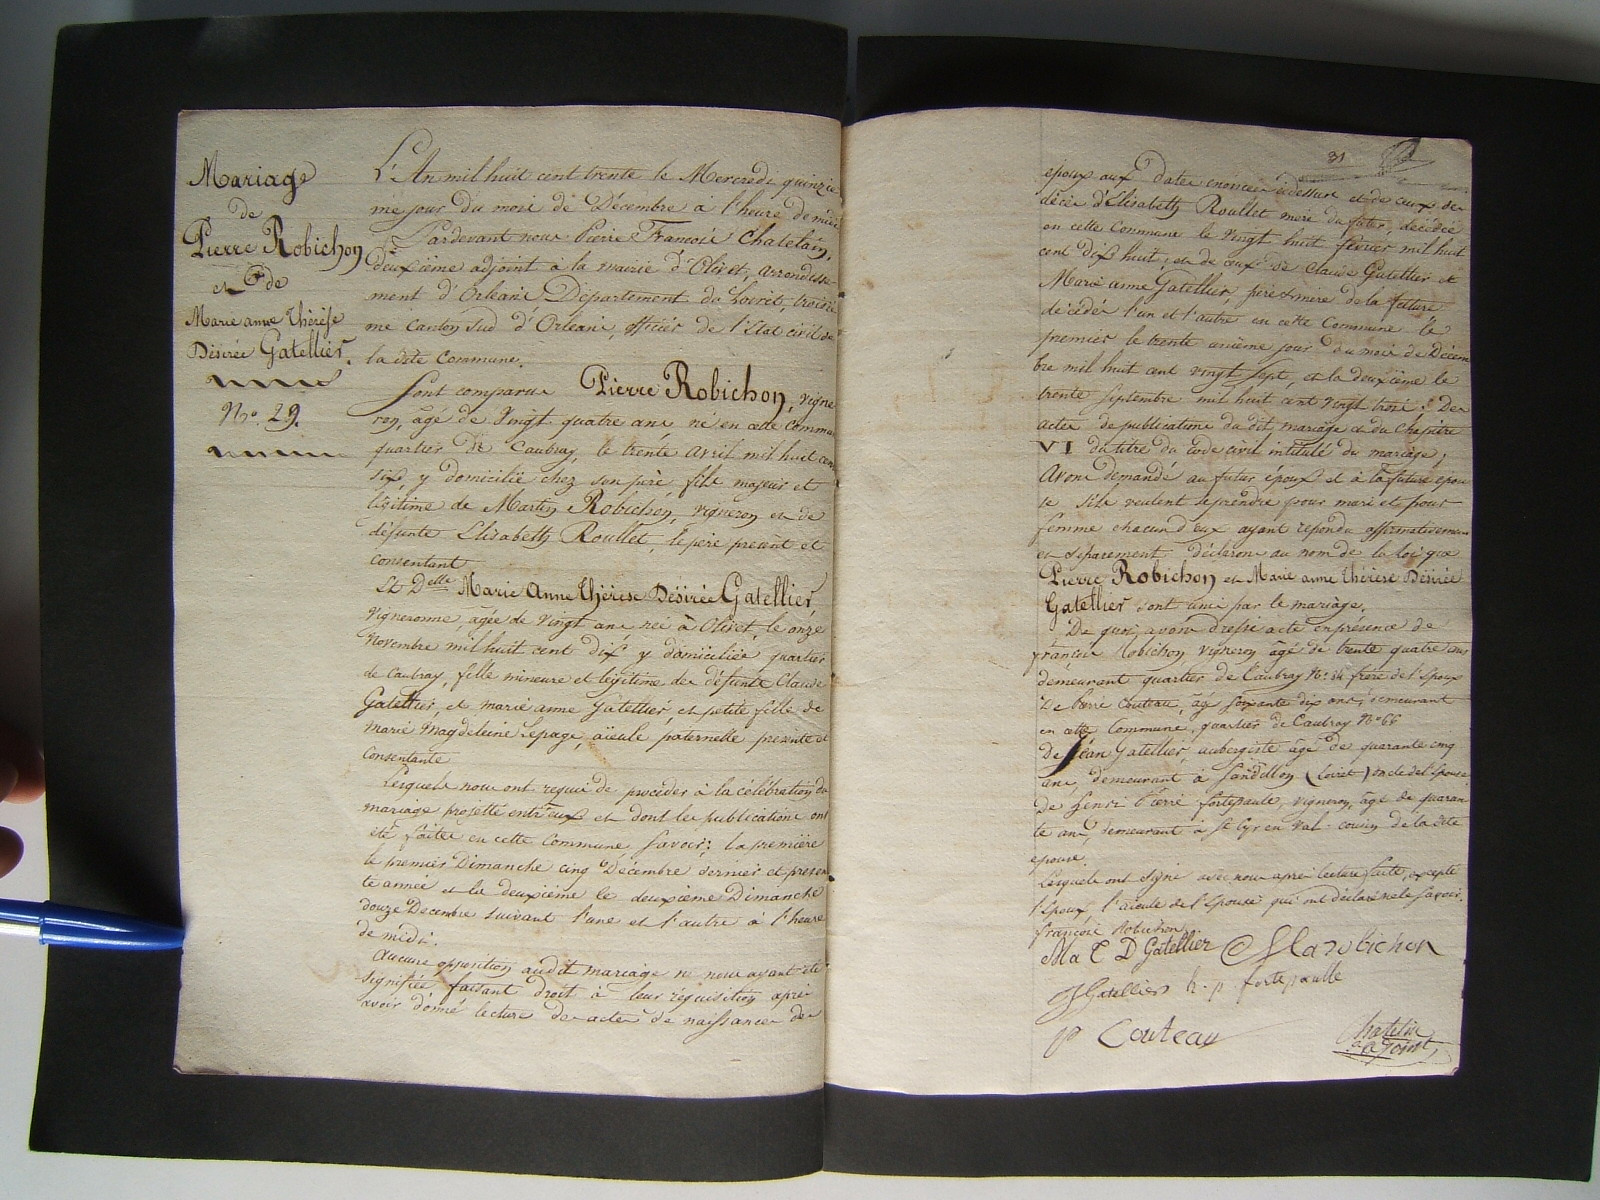 Mariage
de
Pierre Robichon
et de
Marie anne Thérèse
Désirée Gatellier.
No. 29.
L'An mil huit cent trente le Mercredi quinzie
me jour du mois de Décembre à l'heure de midi
Pardevant nous Pierre François Chatelain,
deuxième adjoint à la mairie d'Olivet, arrondisse-
ment d'Orléans Département du Loiret, troisiè
me canton sud d'Orléans, officier de l'Etat civil de
la dite Commune.
Sont comparus Pierre Robichon, vigne
ron, âgé de Vingt quatre ans né en cette Commune
quartier de Caubray, le trente avril mil huit cent
six, y domicilié chez son père, fils majeur et
légitime de Martin Robichon, vigneron et de
défunte Elisabeth Roullet, le père présent et
consentant
Et Delle Marie Anne Thérèse Désirée Gatellier,
Vigneronne, agée de Vingt ans née à Olivet, le onze
Novembre mil huit cent dix y domiciliée quartier
de Caubray, fille mineure et légitime des défunts Claude
Gatellier, et marie anne Gatellier, et petite fille de
Marie Magdeleine Lepage, aïeule paternelle présente et
consentante
Lesquels nous ont requis de procéder à la célébration du
mariage projetté entr'eux et dont les publications ont
été faites en cette Commune, Savoir: la première
le premier Dimanche cinq Décembre dernier et présen
te année et la deuxième le deuxième Dimanche
douze Décembre suivant l'une et l'autre à l'heure
de midi.
Aucune opposition audit mariage ne nous ayant été
signifiée faisant droit à leur réquisition après
avoir donné lecture des actes de naissances des
31
époux aux dates énoncées cidessus et de ceux de
décès d'Elisabeth Roullet mère du futur, décédée
en cette Commune le vingt huit février mil huit
cent dix huit; et de ceux de Claude Gatellier et
Marie anne Gatellier, père & mère de la future
décédés l'un et l'autre en cette Commune le
premier le trente unième jour du mois de Décem
bre mil huit cent vingt sept, et la deuxième le
trente septembre mil huit cent vingt trois; Des
actes de publications du dit mariage et du chapitre
VI du titre du code civil intitulé du mariage;
Avons demandé au futur époux et à la future épou
se s'ils veulent se prendre pour mari et pour
femme chacun d'eux ayant répondu affirmativement
et séparément, déclarons au nom de la loi que
Pierre Robichon et Marie anne Thérèse Désirée
Gatellier sont unis par le mariage.
De quoi avons dressé acte en présence de
françois Robichon, vigneron âgé de trente quatre ans
demeurant quartier de Caubray No. frère de l'Epoux
De Couteau, âgé soixante dix ans, demeurant
en cette Commune, quartier de Caubray No 66
De Jean Gatellier, aubergiste âgé de quarante cinq
ans, demeurant à Sandillon (Loiret) oncle de l'Epouse
De Henri Pierre fortepaule, vigneron, âgé de quaran
te ans, demeurant à St Cyr en Val. cousin de la dite
épouse.
Lesquels ont signé avec nous après lecture faite, excepté
l'Epoux l'aïeule de l'Epouse qui ont déclaré ne le savoir.
françois Robichon
Ma T D Gatellier Ma robichon
J Gatellier h. p fortepaulle
p Couteau
Chatelain
adjoint